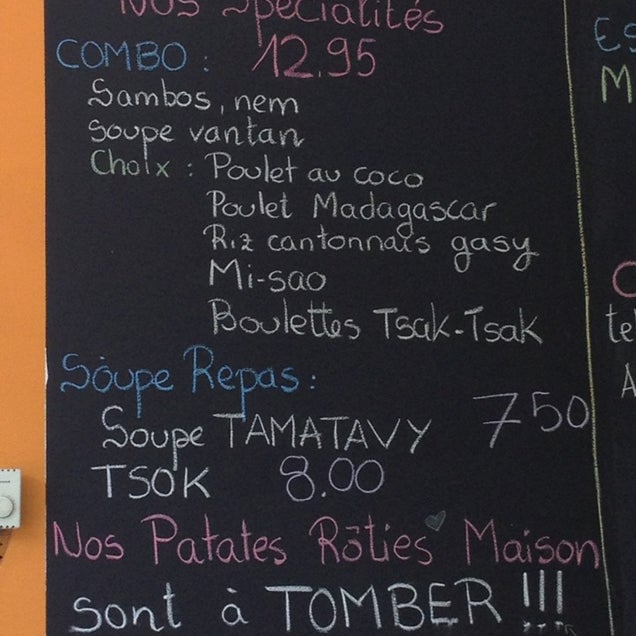 Nos Spécialités
COMBO : 12.95
Sambos, nem
soupe vantan
Choix : Poulet au coco
Poulet Madagascar
Riz cantonnais gasy
Mi-sao
Boulettes Tsak-Tsak
Soupe Repas :
Soupe TAMATAVY 750
TSOK 8.00
Nos Patates Rôties Maison
sont à TOMBER !!!
ES
M
C
tel
A